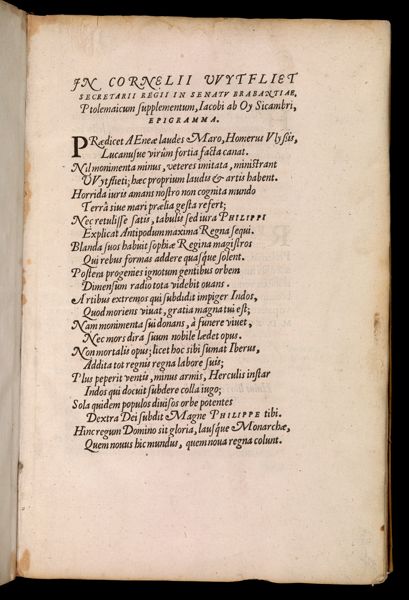 IN CORNELII VVYTFLIET
SECRETARII REGII IN SENATV BRABANTIAE,
Ptolemaicum supplementum, Iacobi ab Oy Sicambri,
EPIGRAMMA.
PRædicet AEneæ laudes Maro, Homerus Vlyssis,
Lucanusue virûm fortia facta canat.
Nil monimenta minus, veteres imitata, ministrant
VVytflieti; hæc proprium laudis & artis habent.
Horrida iuris amans nostro non cognita mundo
Terrâ siue mari prælia gesta refert;
Nec retulisse satis, tabulis sed iura PHILIPPI
Explicat Antipodum maxima Regna sequi.
Blanda suos habuit sophiæ Regina magistros
Qui rebus formas addere quasque solent.
Postera progenies ignotum gentibus orbem
Dimensum radio tota videbit ouans.
Artibus extremos qui subdidit impiger Indos,
Quod moriens viuat, gratia magna tui est;
Nam monimenta sui donans, à funere viuet,
Nec mors dira suum nobile lædet opus.
Non mortalis opus; licet hoc sibi sumat Iberus,
Addita tot regnis regna labore suis;
Plus peperit ventis, minus armis, Herculis instar
Indos qui docuit subdere colla iugo;
Sola quidem populos diuisos orbe potentes
Dextra Dei subdit Magne PHILIPPE tibi.
Hinc regum Domino sit gloria, lausque Monarchæ,
Quem nouus hic mundus, quem noua regna colunt.